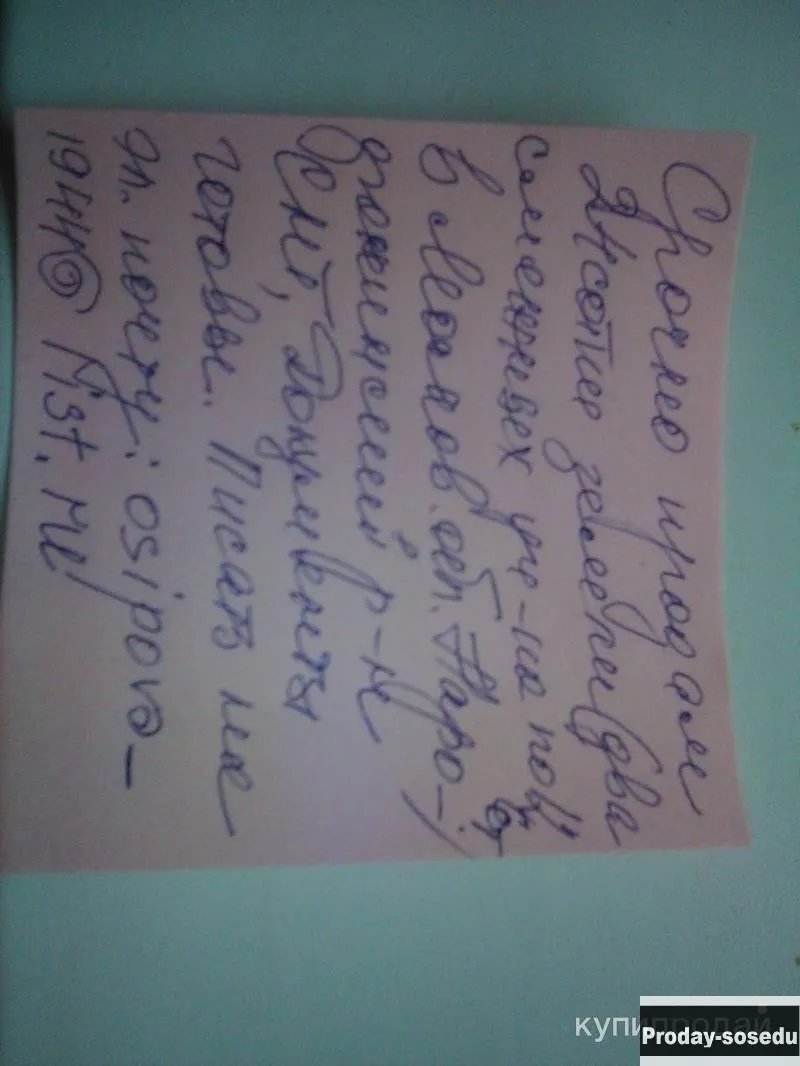 Срочно продам
24 сотые земли (два
смежных уч-ка по 12 сот)
в Москов. обл. Наро-
фоминский р-н
СНТ, Документы
готовы. Писать на
эл. почту: osipova-
1944@list.ru
купипродай
Proday-sosedu